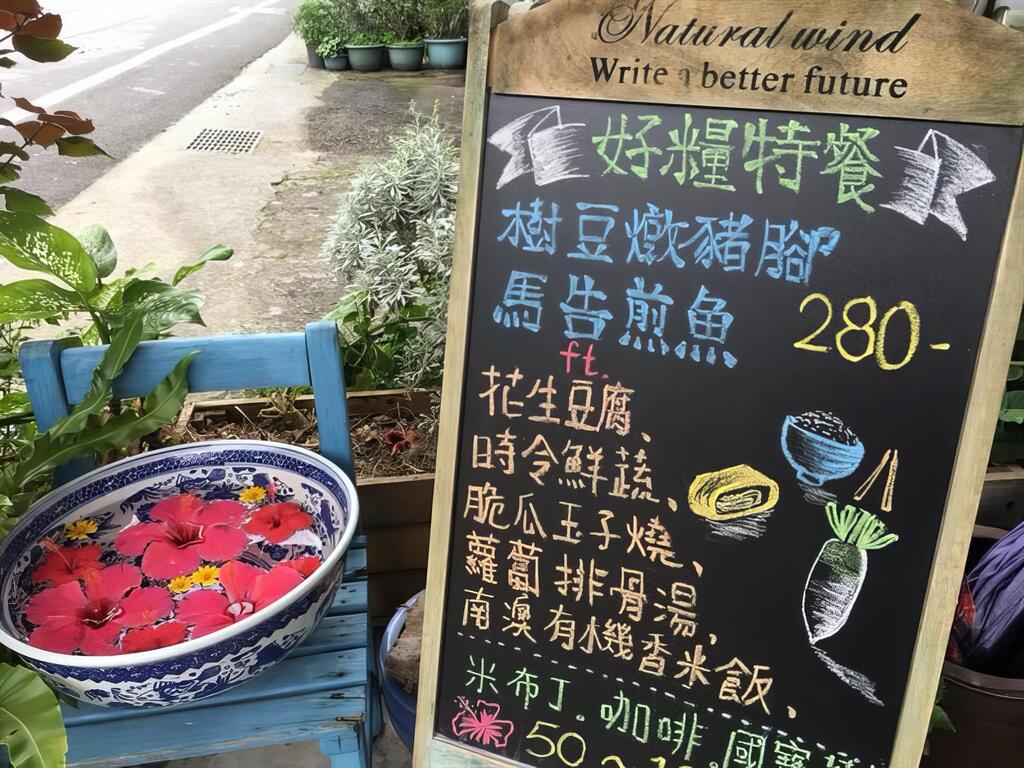 Natural wind
Write a better future
好糧特餐
樹豆燉豬腳
馬告煎魚 280-
ft.
花生豆腐、
時令鮮蔬、
脆瓜玉子燒、
蘿蔔排骨湯,
南澳有機香米飯,
米布丁.咖啡.國寶
50~